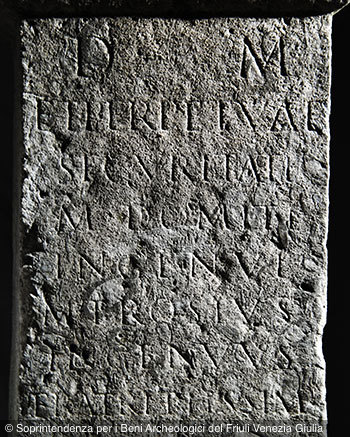 D M
ET PERPETVAE
SECVRITATI
M DOMITI
INGENVI
M TROSIVS
FRATRI PIISSIMO
© Soprintendenza per i Beni Archeologici del Friuli Venezia Giulia